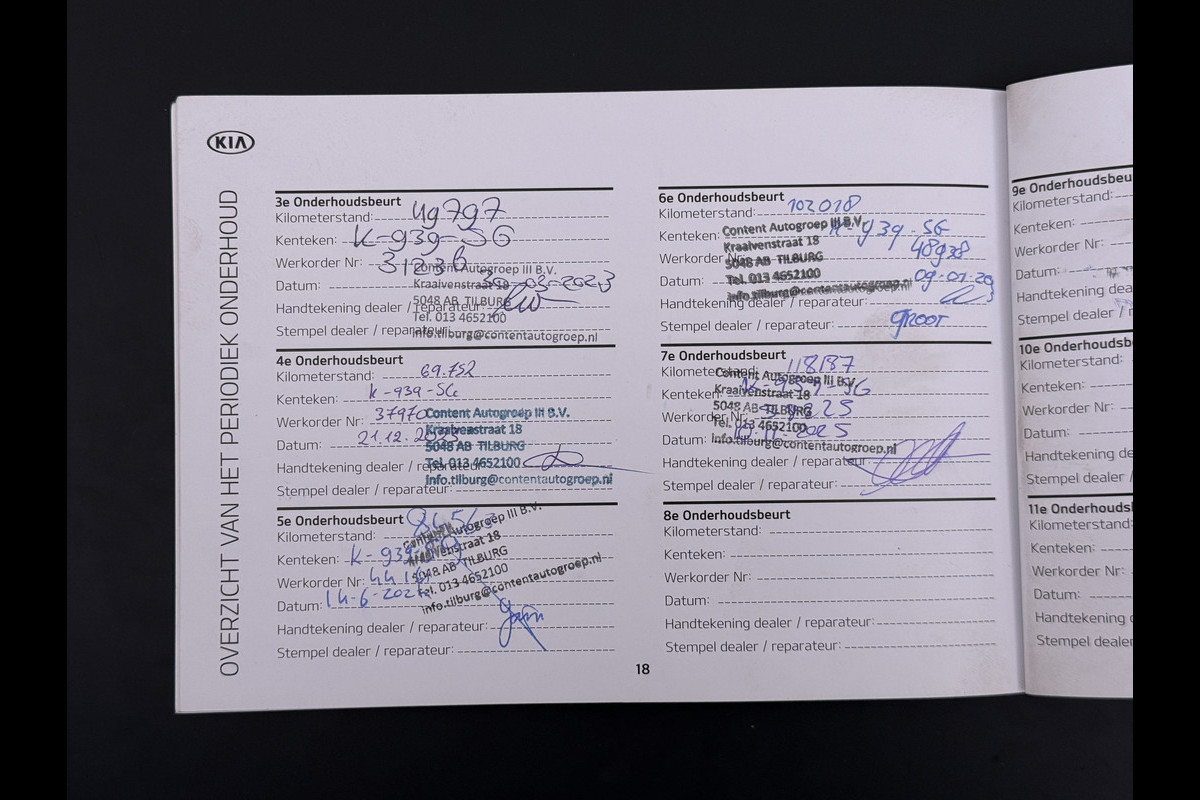 KIA
OVERZICHT VAN HET PERIODIEK ONDERHOUD
3e Onderhoudsbeurt
Kilometerstand: 49797
Kenteken: K-939-SG
Werkorder Nr: 31236
Datum: -03-2023
Handtekening dealer / reparateur:
Stempel dealer / reparateur:
Content Autogroep III B.V.
Kraaivenstraat 18
5048 AB TILBURG
Tel. 013 4652100
info.tilburg@contentautogroep.nl
4e Onderhoudsbeurt
Kilometerstand: 69.752
Kenteken: K-939-SG
Werkorder Nr: 37970
Datum: 21.12.2023
Handtekening dealer / reparateur:
Stempel dealer / reparateur:
Content Autogroep III B.V.
Kraaivenstraat 18
5048 AB TILBURG
Tel. 013 4652100
info.tilburg@contentautogroep.nl
5e Onderhoudsbeurt
Kenteken: K-939-
Werkorder Nr:
Datum: 14-6-2024
Handtekening dealer / reparateur:
Stempel dealer / reparateur:
Content Autogroep III B.V.
Kraaivenstraat 18
5048 AB TILBURG
Tel. 013 4652100
info.tilburg@contentautogroep.nl
6e Onderhoudsbeurt
Kilometerstand: 102018
Kenteken: K-939-SG
Werkorder Nr: 48938
Datum: 09-01-20
Handtekening dealer / reparateur:
Stempel dealer / reparateur: groot
Content Autogroep III B.V.
Kraaivenstraat 18
5048 AB TILBURG
Tel. 013 4652100
info.tilburg@contentautogroep.nl
7e Onderhoudsbeurt
Kilometerstand: 118187
Kenteken: K-939-SG
Werkorder Nr:
Datum: 10-11-2025
Handtekening dealer / reparateur:
Stempel dealer / reparateur:
Content Autogroep III B.V.
Kraaivenstraat 18
5048 AB TILBURG
Tel. 013 4652100
info.tilburg@contentautogroep.nl
8e Onderhoudsbeurt
Kilometerstand:
Kenteken:
Werkorder Nr:
Datum:
Handtekening dealer / reparateur:
Stempel dealer / reparateur:
18
9e Onderhoudsbeu
Kilometerstand:
Kenteken:
Werkorder Nr:
Datum:
Handtekening dea
Stempel dealer / r
10e Onderhoudsb
Kilometerstand:
Kenteken:
Werkorder Nr:
Datum:
Handtekening de
Stempel dealer /
11e Onderhouds
Kilometerstand:
Kenteken:
Werkorder Nr:
Datum:
Handtekening d
Stempel dealer